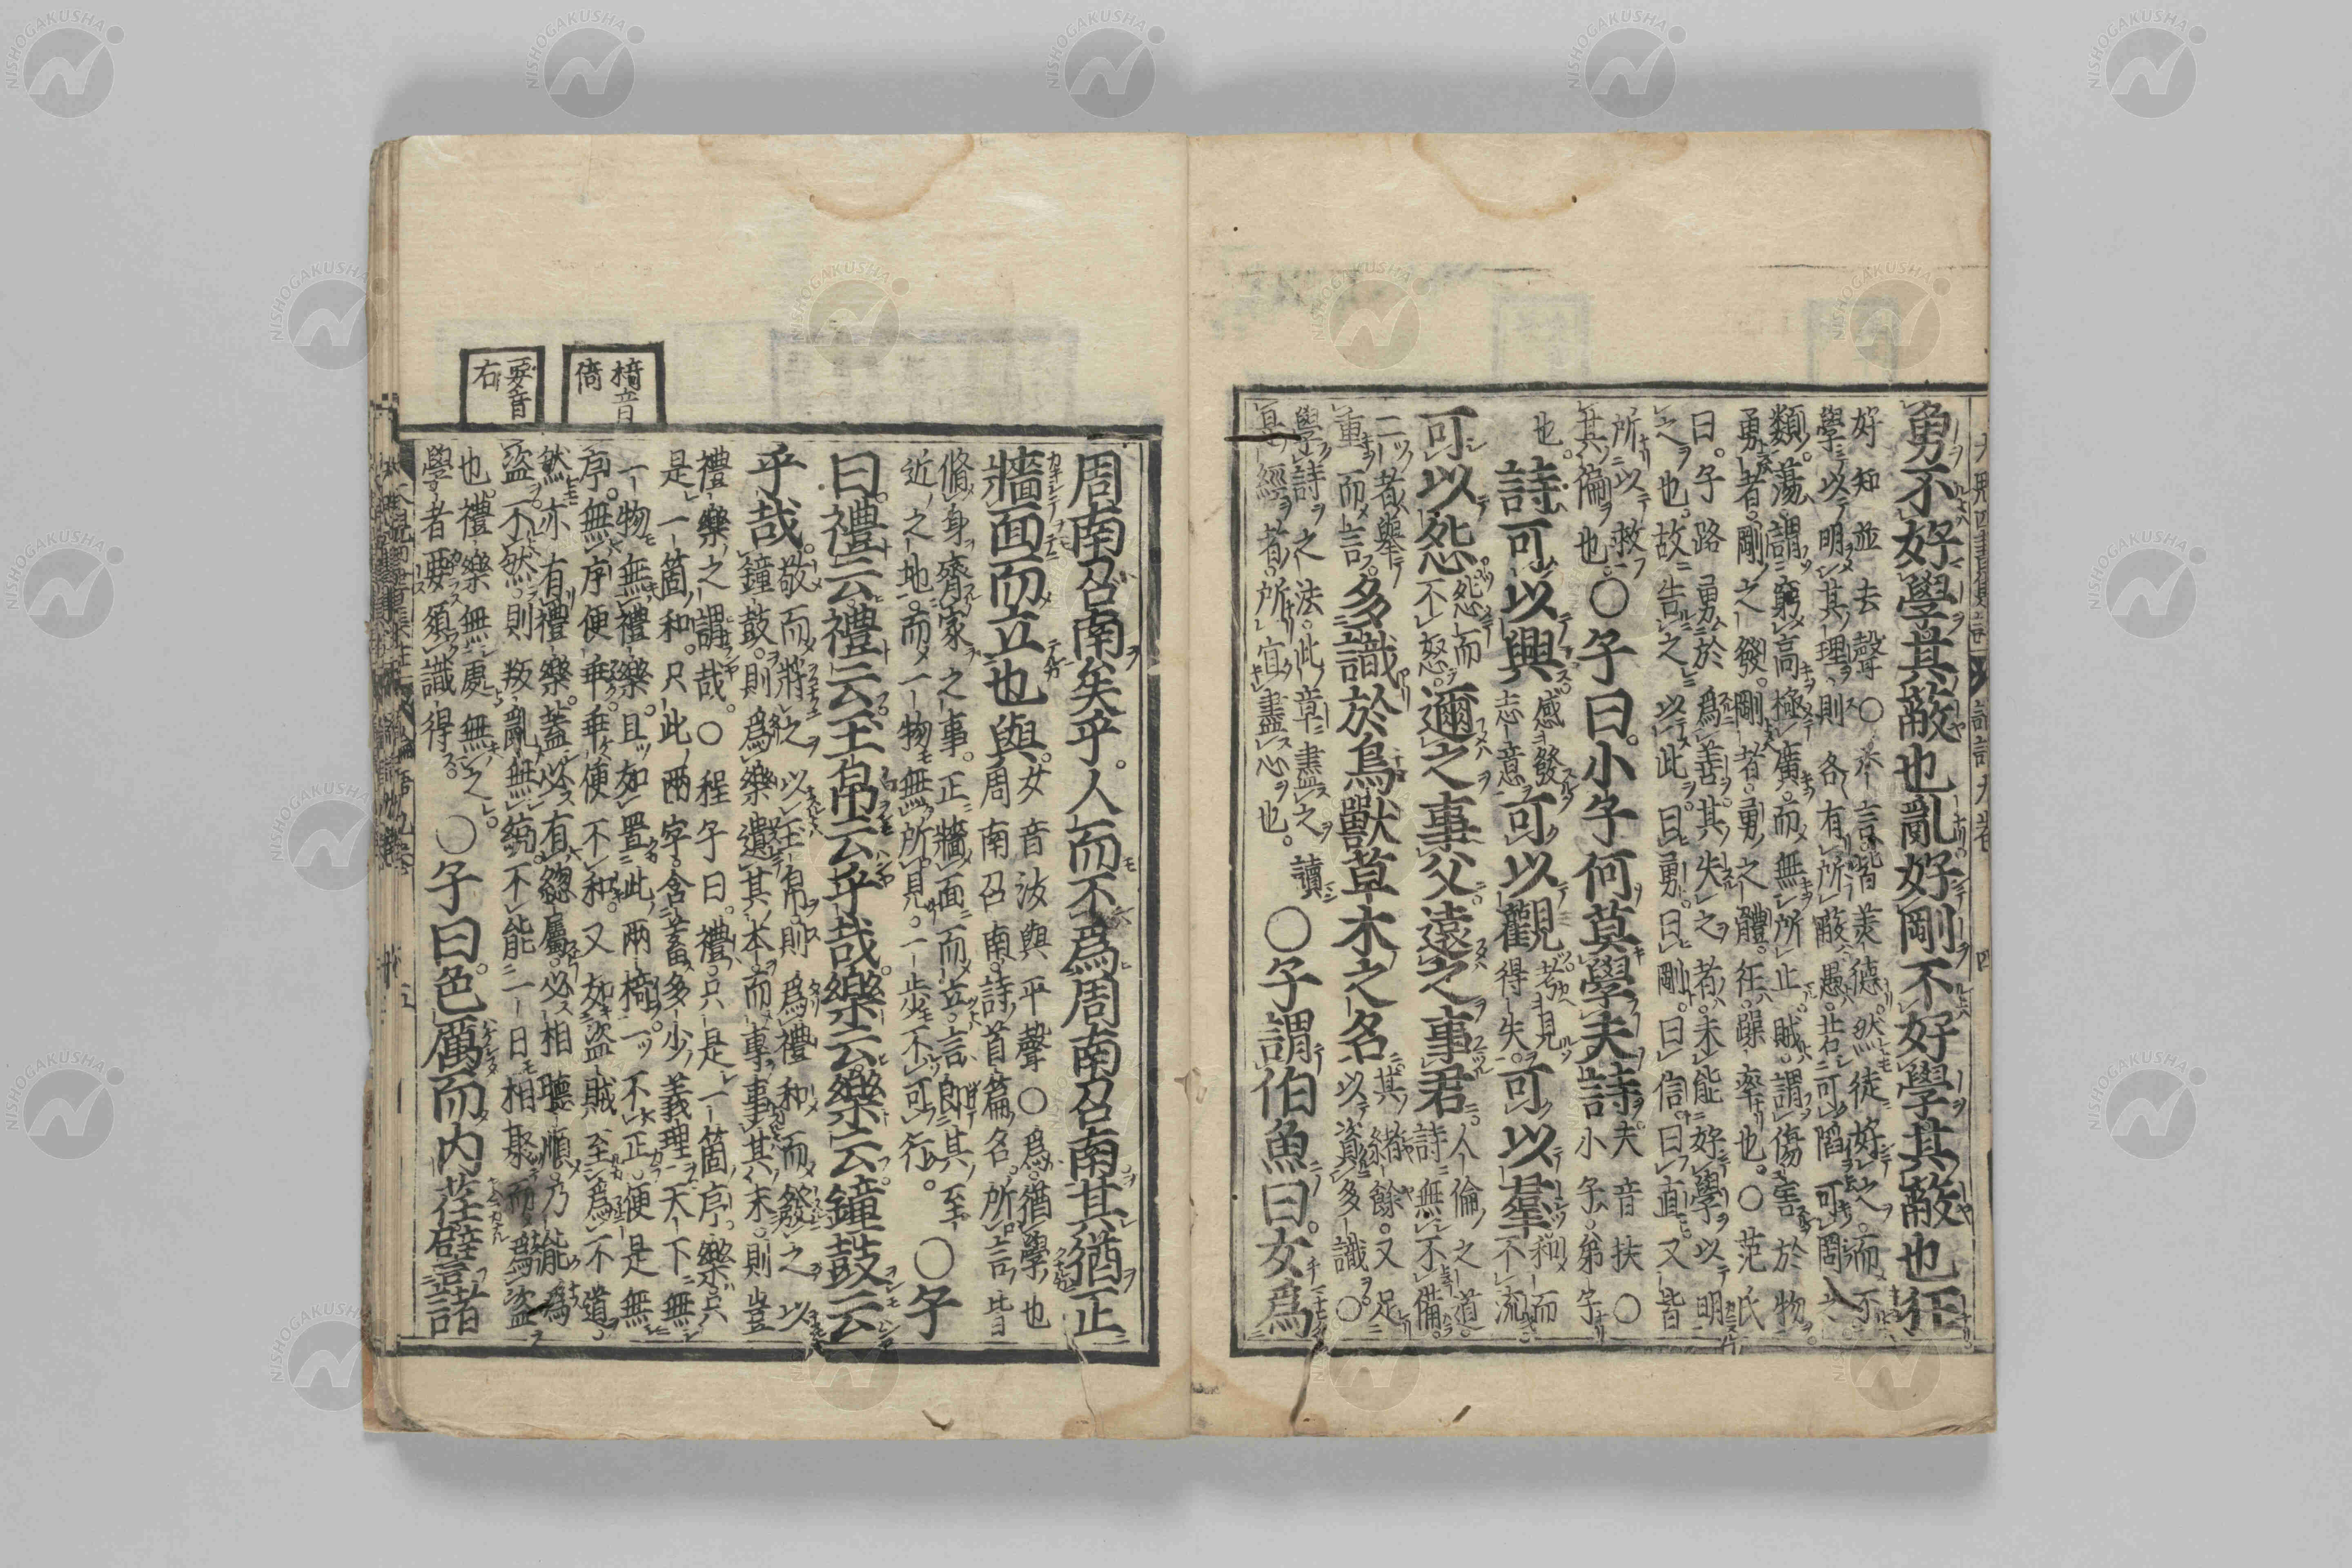 勇不好學其蔽也亂好剛不好學其蔽也狂
好知並去聲○六言皆美德然徒好之而不
學以明其理則各有所蔽愚若可陷可罔之
類蕩謂窮高極廣而無所止賊謂傷害於物
勇者剛之發剛者勇之體狂躁率也○范氏
曰子路勇於爲善其失之者未能好學以明
之也故告之以此曰勇曰剛曰信曰直又皆
所以救
其偏也○子曰小子何莫學夫詩夫音扶○小子弟子
也詩可以興感發志意可以觀考見得失可以羣和而不流
可以怨怨而不怒邇之事父遠之事君人倫之道詩無不備
二者舉重而言多識於鳥獸草木之名其緒餘又足以資多識○
學詩之法此章盡之讀
是經者所宜盡心也○子謂伯魚曰女爲
椅音倚
要音右
周南召南矣乎人而不爲周南召南其猶正
牆面而立也與女音汝與平聲○爲猶學也周南召南詩首篇名所言皆
脩身齊家之事正牆面而立言卽其至
近之地而一物無所見一步不可行○子
曰禮云禮云玉帛云乎哉樂云樂云鐘鼓云
乎哉敬而將之以玉帛則爲禮和而發之以鐘鼓則爲樂遺其本而專事其末則豈
禮樂之謂哉○程子曰禮只是一箇序樂只
是一箇和只此兩字含蓄多少義理天下無
一物無禮樂且如置此兩椅一不正便是無
序無序便乖乖便不和又如盜賊至爲不道
然亦有禮樂蓋必有總屬必相聽順乃能爲
盜不然則叛亂無統不能一日相聚而爲盜
也禮樂無處無之
學者要須識得○子曰色厲而內荏譬諸